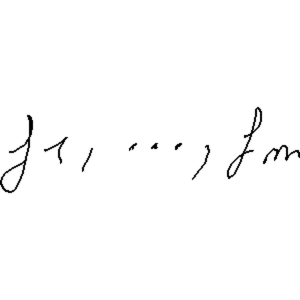 f1, ..., fm